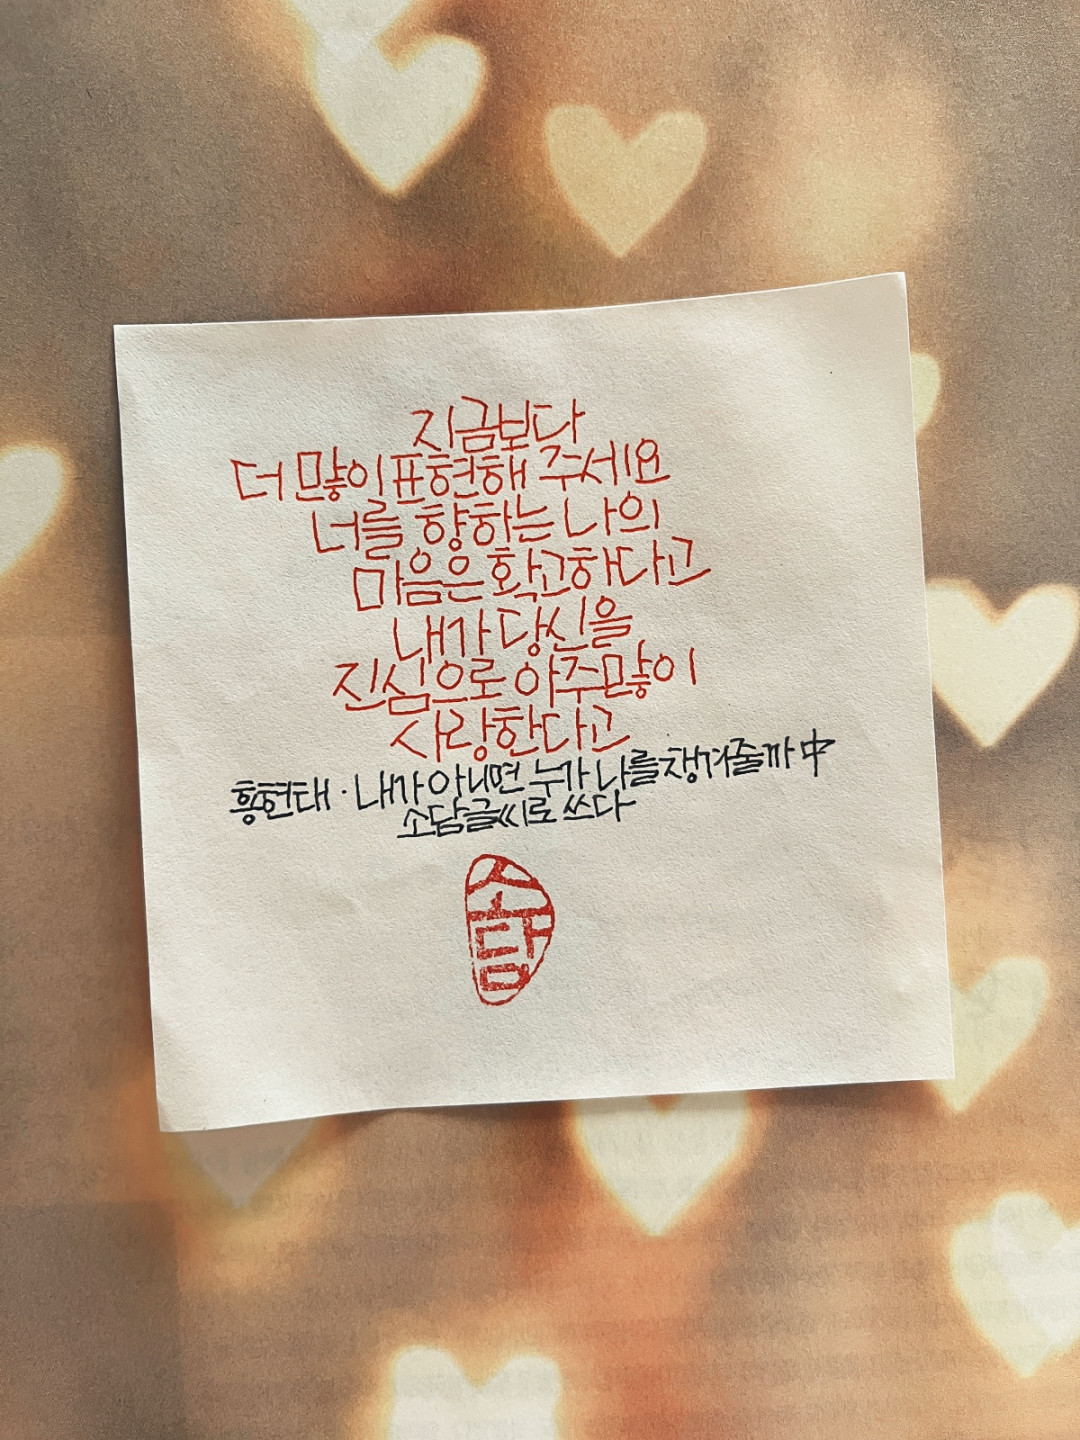 지금보다
더 많이 표현해 주세요
너를 향하는 나의
마음은 확고하다고
내가 당신을
진심으로 아주 많이
사랑한다고
황현태 · 내가 아니면 누가 나를 챙겨줄까 中
소담글씨로 쓰다
소담